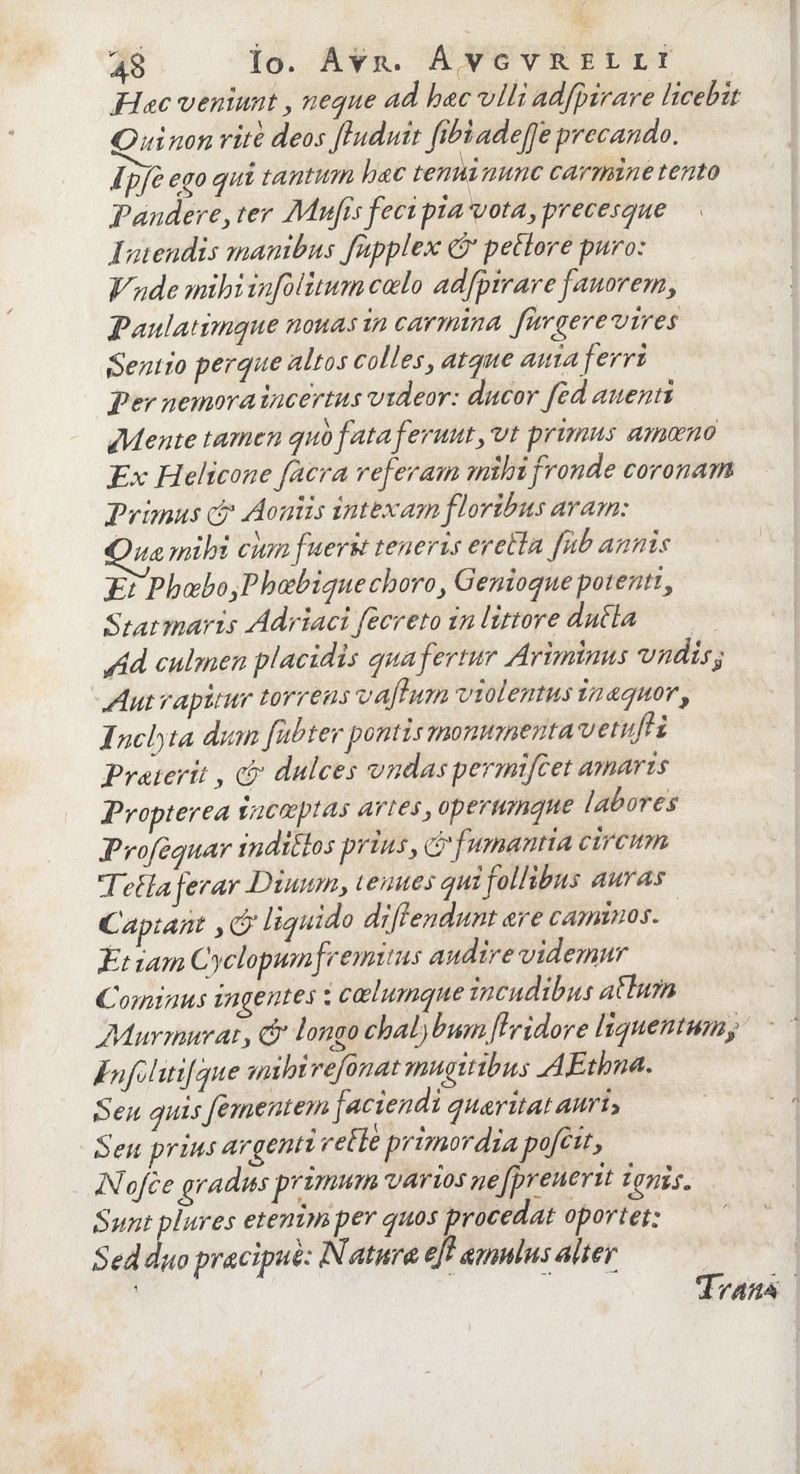 48 Io. AVR. AVGVRELLI
Hæc veniunt, neque ad hæc vlli adſpirare licebit
Qui non ritè deos ſtuduit ſibi adeſſe precando.
Ipſe ego qui tantum hæc tenui nunc carmine tento
Pandere, ter Muſis feci pia vota, precesque
Intendis manibus ſupplex & pectore puro:
Vnde mihi inſolitum cœlo adſpirare fauorem,
Paulatimque nouas in carmina ſurgere vires
Sentio perque altos colles, atque auia ferri
Per nemora incertus videor: ducor ſed auenti
Mente tamen quò fata feruut, vt primus amœno
Ex Helicone ſacra referam mihi fronde coronam
Primus & Aoniis intexam floribus aram:
Quæ mihi cùm fuerit teneris erecta ſub annis
Et Phœbo, Phœbique choro, Genioque potenti,
Stat maris Adriaci ſecreto in littore ducta
Ad culmen placidis qua fertur Ariminus vndis;
Aut rapitur torrens vaſtum violentus in æquor,
Inclyta dum ſubter pontis monumenta vetuſti
Præterit, & dulces vndas permiſcet amaris
Propterea incœptas artes, operumque labores
Proſequar indictos prius, & fumantia circum
Tecta ferar Diuum, tenues qui follibus auras
Captant, & liquido diſtendunt ære caminos.
Et iam Cyclopum fremitus audire videmur
Cominus ingentes: cœlumque incudibus actum
Murmurat, & longo chalybum ſtridore liquentum,
Inſolitiſque mihi reſonat mugitibus AEthna.
Seu quis ſementem faciendi quæritat auri,
Seu prius argenti rectè primordia poſcit,
Noſce gradus primum varios ne ſpreuerit ignis.
Sunt plures etenim per quos procedat oportet:
Sed duo præcipuè: Naturæ eſt æmulus alter
Trans